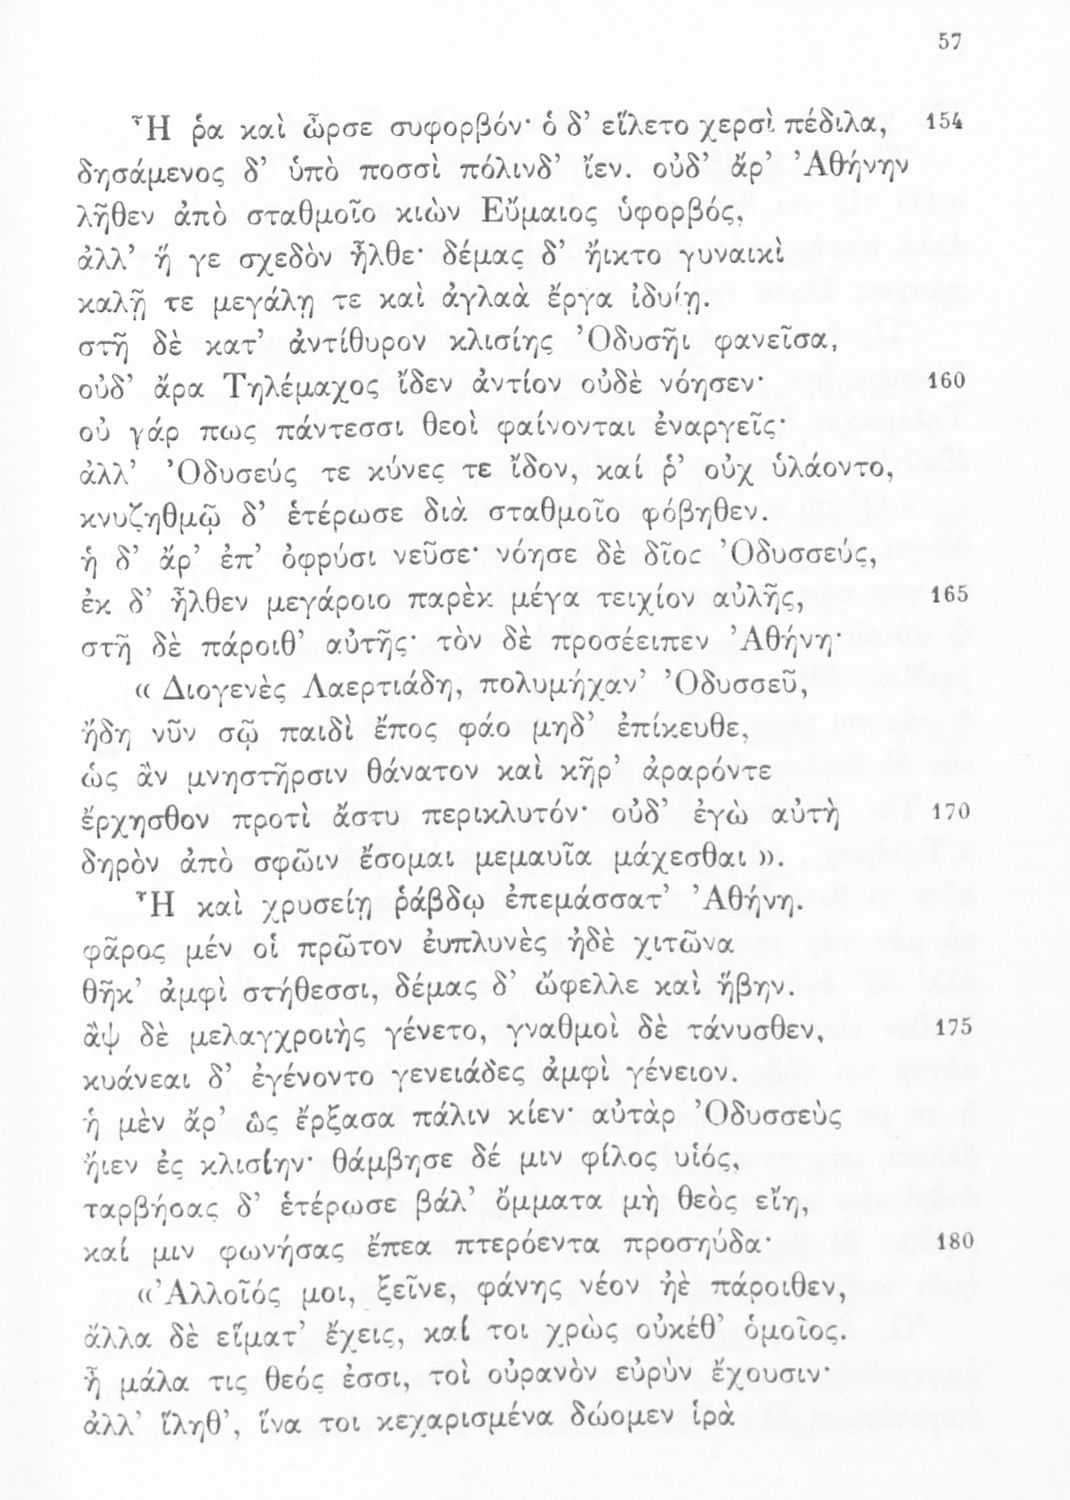 57
Ἦ ῥα καὶ ὦρσε συφορβόν· ὁ δ’ εἵλετο χερσὶ πέδιλα, 154
δησάμενος δ’ ὑπὸ ποσσὶ πόλινδ’ ἴεν. οὐδ’ ἄρ’ Ἀθήνην
λῆθεν ἀπὸ σταθμοῖο κιὼν Εὔμαιος ὑφορβός,
ἀλλ’ ἥ γε σχεδὸν ἦλθε· δέμας δ’ ἤικτο γυναικὶ
καλῇ τε μεγάλῃ τε καὶ ἀγλαὰ ἔργα ἰδυίῃ.
στῆ δὲ κατ’ ἀντίθυρον κλισίης Ὀδυσῆι φανεῖσα,
οὐδ’ ἄρα Τηλέμαχος ἴδεν ἀντίον οὐδὲ νόησεν· 160
οὐ γάρ πως πάντεσσι θεοὶ φαίνονται ἐναργεῖς·
ἀλλ’ Ὀδυσεύς τε κύνες τε ἴδον, καί ῥ’ οὐχ ὑλάοντο,
κνυζηθμῷ δ’ ἑτέρωσε διὰ σταθμοῖο φόβηθεν.
ἡ δ’ ἄρ’ ἐπ’ ὀφρύσι νεῦσε· νόησε δὲ δῖος Ὀδυσσεύς,
ἐκ δ’ ἦλθεν μεγάροιο παρὲκ μέγα τειχίον αὐλῆς, 165
στῆ δὲ πάροιθ’ αὐτῆς· τὸν δὲ προσέειπεν Ἀθήνη·
« Διογενὲς Λαερτιάδη, πολυμήχαν’ Ὀδυσσεῦ,
ἤδη νῦν σῷ παιδὶ ἔπος φάο μηδ’ ἐπίκευθε,
ὡς ἂν μνηστῆρσιν θάνατον καὶ κῆρ’ ἀραρόντε
ἔρχησθον προτὶ ἄστυ περικλυτόν· οὐδ’ ἐγὼ αὐτὴ 170
δηρὸν ἀπὸ σφῶιν ἔσομαι μεμαυῖα μάχεσθαι ».
Ἦ καὶ χρυσείῃ ῥάβδῳ ἐπεμάσσατ’ Ἀθήνη.
φᾶρος μέν οἱ πρῶτον ἐυπλυνὲς ἠδὲ χιτῶνα
θῆκ’ ἀμφὶ στήθεσσι, δέμας δ’ ὤφελλε καὶ ἥβην.
ἂψ δὲ μελαγχροιὴς γένετο, γναθμοὶ δὲ τάνυσθεν, 175
κυάνεαι δ’ ἐγένοντο γενειάδες ἀμφὶ γένειον.
ἡ μὲν ἄρ’ ὣς ἔρξασα πάλιν κίεν· αὐτὰρ Ὀδυσσεὺς
ἤιεν ἐς κλισίην· θάμβησε δέ μιν φίλος υἱός,
ταρβήσας δ’ ἑτέρωσε βάλ’ ὄμματα μὴ θεὸς εἴη,
καί μιν φωνήσας ἔπεα πτερόεντα προσηύδα· 180
«Ἀλλοῖός μοι, ξεῖνε, φάνης νέον ἠὲ πάροιθεν,
ἄλλα δὲ εἵματ’ ἔχεις, καί τοι χρὼς οὐκέθ’ ὁμοῖος.
ἦ μάλα τις θεός ἐσσι, τοὶ οὐρανὸν εὐρὺν ἔχουσιν·
ἀλλ’ ἵληθ’, ἵνα τοι κεχαρισμένα δώομεν ἱρὰ